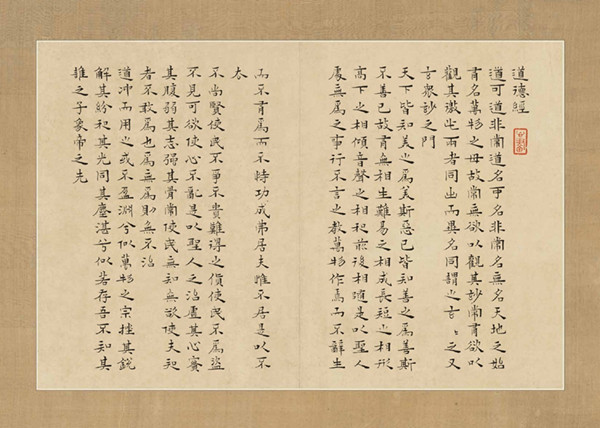 道德經
道可道非常道名可名非常名無名天地之始
有名萬物之母故常無欲以觀其妙常有欲以
觀其徼此兩者同出而異名同謂之玄〻之又
玄眾妙之門
天下皆知美之為美斯惡已皆知善之為善斯
不善已故有無相生難易之相成長短之相形
高下之相傾音聲之相和前後相隨是以聖人
處無為之事行不言之教萬物作焉而不辭生
而不有為而不恃功成弗居夫惟不居是以不
去
不尚賢使民不爭不貴難得之貨使民不為盜
不見可欲使心不亂是以聖人之治虛其心實
其腹弱其志強其骨常使民無知無欲使夫知
者不敢為也為無為則無不治
道沖而用之或不盈淵兮似萬物之宗挫其銳
解其紛和其光同其塵湛兮似若存吾不知其
誰之子象帝之先